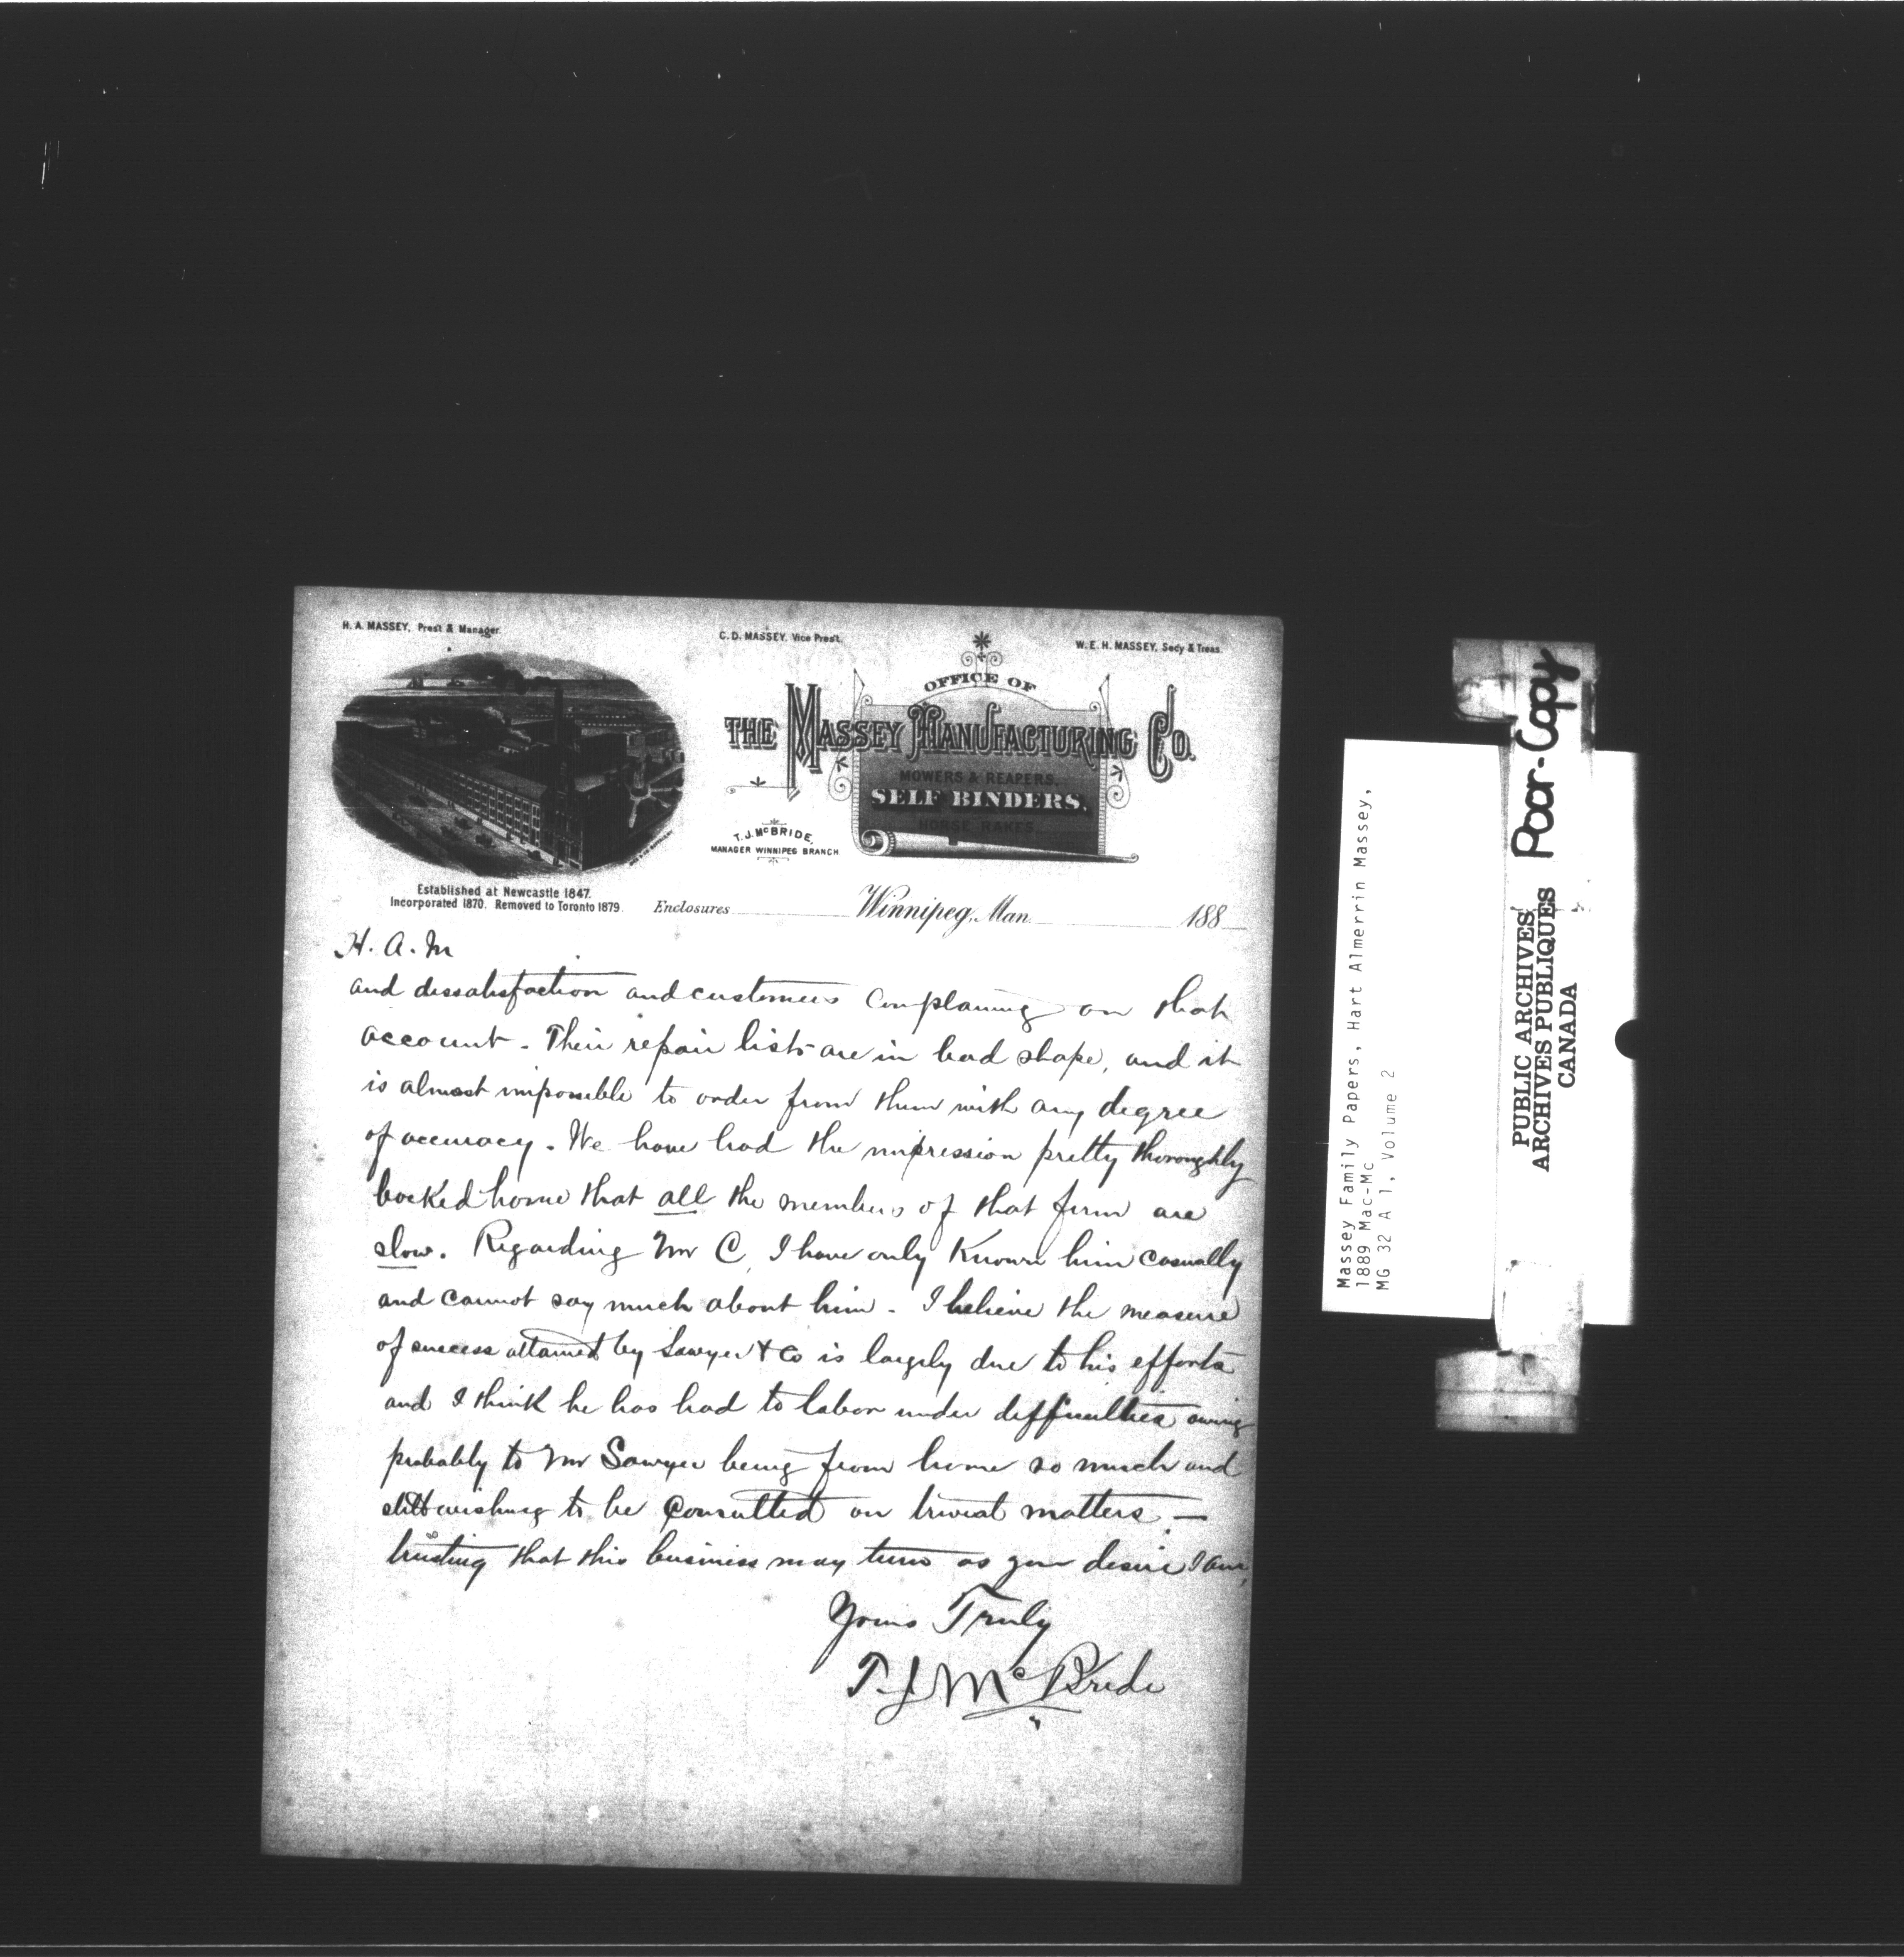 H. A. MASSEY, Pres't & Manager.
C. D. MASSEY, Vice Pres't.
W. E. H. MASSEY, Secy & Treas.
OFFICE OF
THE MASSEY MANUFACTURING CO.
MOWERS & REAPERS,
SELF BINDERS,
HORSE RAKES
T. J. McBRIDE,
MANAGER WINNIPEG BRANCH
Established at Newcastle 1847.
Incorporated 1870. Removed to Toronto 1879.
Enclosures Winnipeg, Man. 188
H. A. M
and dissatisfaction and customers complaining on that
account. Their repair lists are in bad shape, and it
is almost impossible to order from them with any degree
of accuracy. We have had the impression pretty thoroughly
home that all the members of that firm are
slow. Regarding Mr C, I have only Known him casually
and cannot say much about him. I believe the measure
of success attained by Sawyer & Co is largely due to his efforts
and I think he has had to labor under difficulties owing
probably to Mr Sawyer being from home so much and
still wishing to be consulted on trivial matters. —
trusting that this business may turn as you desire I am,
Yours Truly
T. J. McBride
Massey Family Papers, Hart Almerrin Massey,
1889 Mac-Mc
MG 32 A 1, Volume 2
PUBLIC ARCHIVES
ARCHIVES PUBLIQUES
CANADA
Poor-Copy